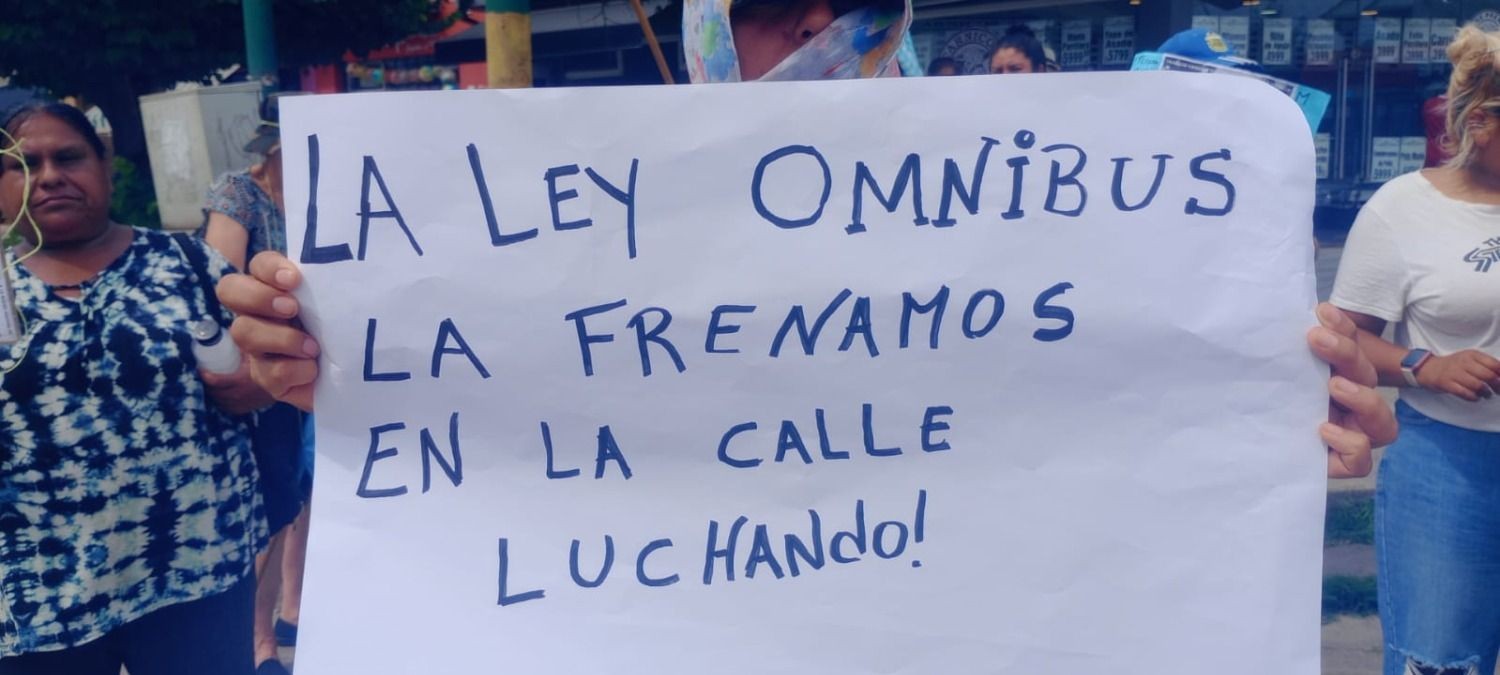 LA LEY OMNiBUS
LA FRENAMOS
EN LA CALLE
LUCHANdo!